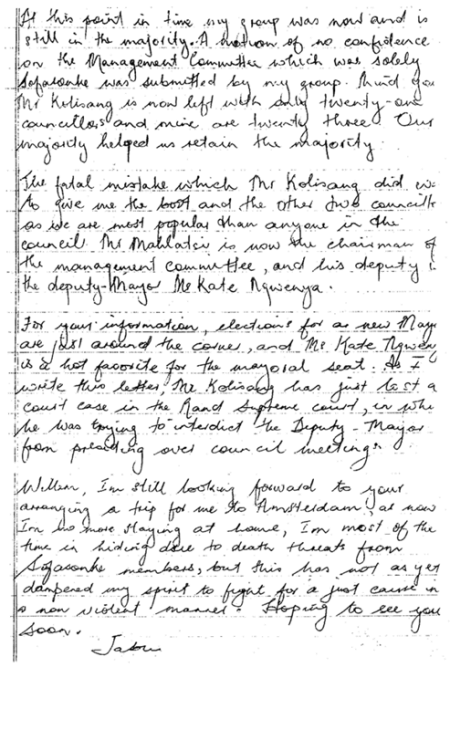 At this point in time my group was now and is
still in the majority. A motion of no confidence
on the Management Committee which was solely
Sofasonke was submitted by my group. Mind you
Mr Kolisang is now left with only twenty-one
councillors and mine are twenty three. Our
majority helped us retain the majority.
The fatal mistake which Mr Kolisang did
to give me the boot and the other two
as we are most popular than anyone in the
council. Mr Mahlatsi is now the chairman of
the management committee, and his deputy
the deputy-Mayor Ms Kate Ngwenya.
For your information, elections for a new
are just around the corner, and Ms Kate
is a hot favorite for the mayoral seat. As I
write this letter, Mr Kolisang has just lost a
court case in the Rand Supreme court, in
he was trying to interdict the Deputy-Mayor
from presiding over council meetings.
Willem, I'm still looking forward to your
arranging a trip for me to Amsterdam, as now
I'm no more staying at home, I'm most of the
time in hiding due to death threats from
Sofasonke members, but this has not as yet
dampened my spirit to fight for a just cause in
a non violent manner. Hoping to see you
soon.
Jabu